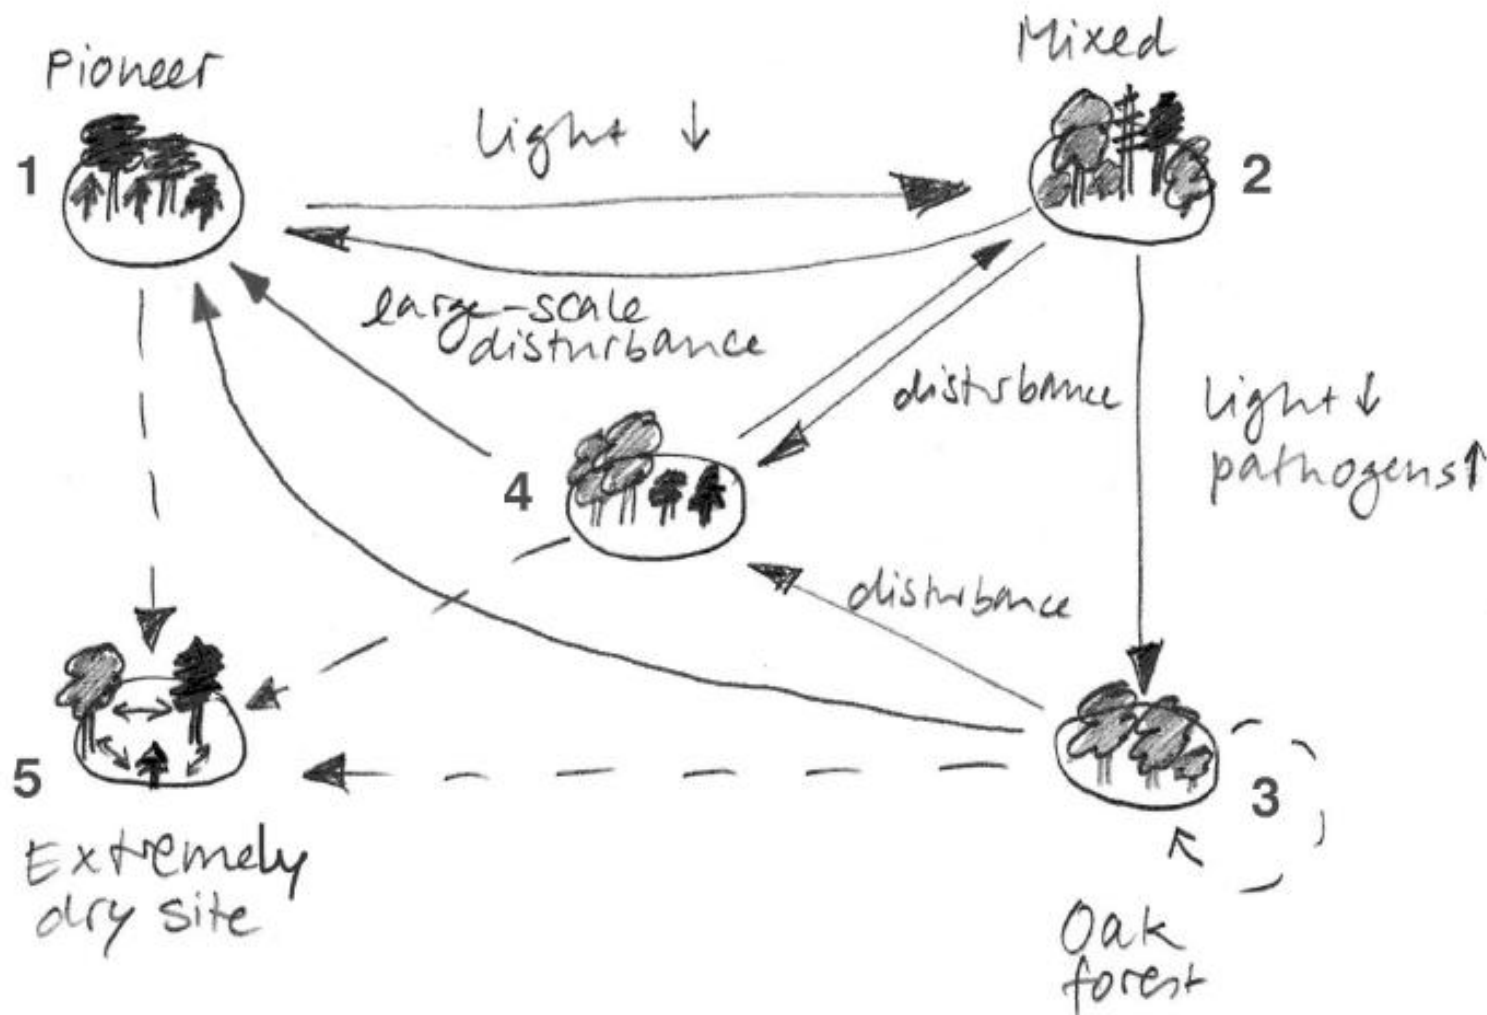 Pioneer
Mixed
1
Light ↓
2
large-scale
disturbance
disturbance
Light ↓
pathogens ↑
4
disturbance
5
3
Extremely
dry site
Oak
forest